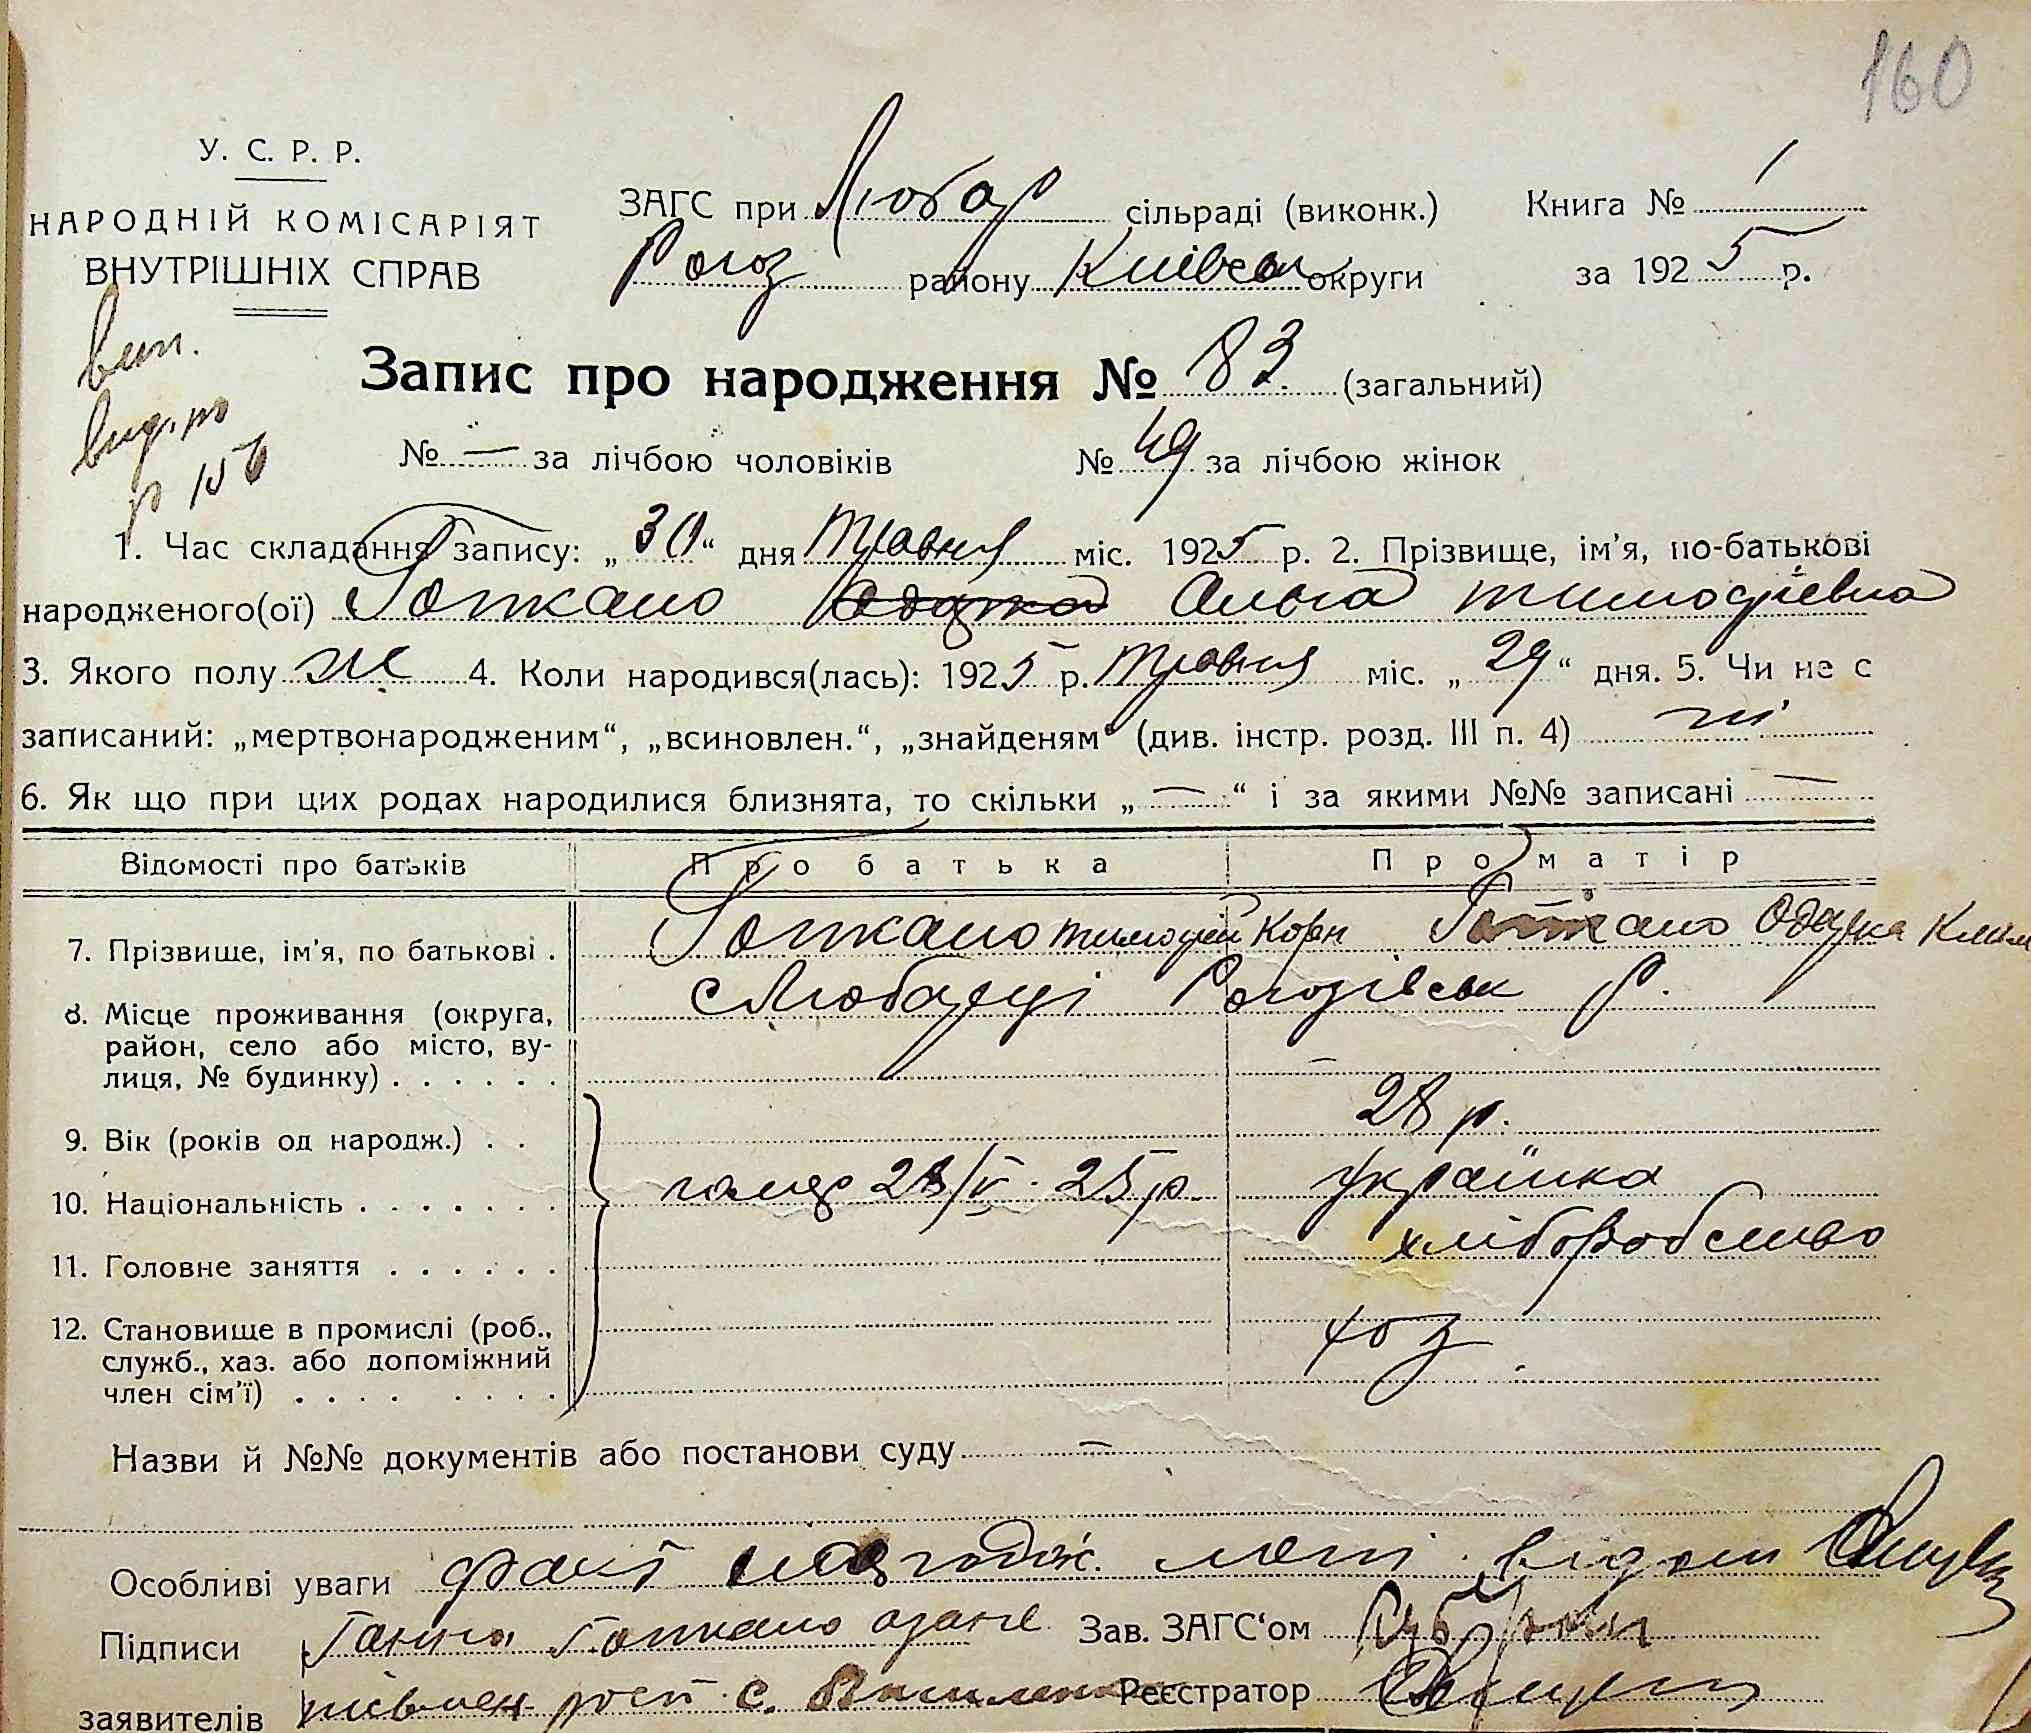 160
У. С. Р. Р.
НАРОДНІЙ КОМІСАРІЯТ
ВНУТРІШНІХ СПРАВ
ЗАГС при Любар сільраді (виконк.)
Рогоз району Київськ округи
Книга № 1
за 1925 р.
вип.
Запис про народження № 83 (загальний)
№ — за лічбою чоловіків № 49 за лічбою жінок
1. Час складання запису: „30“ дня травня міс. 1925 р. 2. Прізвище, ім'я, по-батькові
народженого(ої) Гопкало Ольга Тимофієвна
3. Якого полу ж 4. Коли народився(лась): 1925 р. травня міс. „29“ дня. 5. Чи не є
записаний: „мертвонародженим“, „всиновлен.“, „знайденям“ (див. інстр. розд. III п. 4) ні
6. Як що при цих родах народилися близнята, то скільки „—“ і за якими №№ записані —
Відомості про батьків Про батька Про матір
7. Прізвище, ім'я, по батькові . Гопкало Тимофій Корн Гопкало Одарка Клим
8. Місце проживання (округа, с Любарці Рогозівськ р.
район, село або місто, ву-
лиця, № будинку) . . . . . . —
9. Вік (років од народж.) . . 28 р.
10. Національність . . . . . . . 28/V 25 р. українка
11. Головне заняття . . . . . . хліборобство
12. Становище в промислі (роб., хоз
служб., хаз. або допоміжний
член сім'ї) . . . . . . . .
Назви й №№ документів або постанови суду —
Особливі уваги факт народж. мені відом
Підписи Ганна Гопкало Зав. ЗАГС'ом
заявителів с. Реєстратор